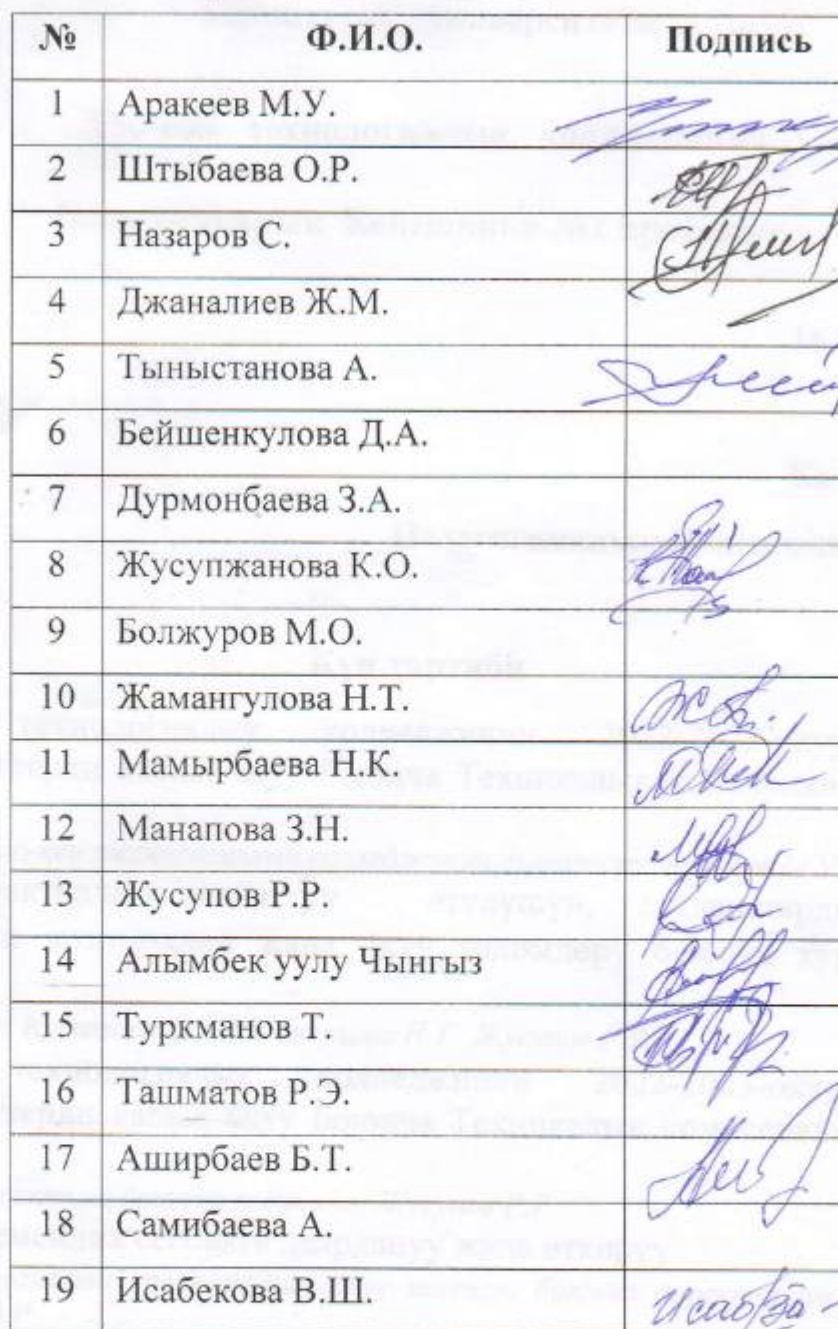 № Ф.И.О. Подпись
1 Аракеев М.У.
2 Штыбаева О.Р.
3 Назаров С.
4 Джаналиев Ж.М.
5 Тыныстанова А.
6 Бейшенкулова Д.А.
7 Дурмонбаева З.А.
8 Жусупжанова К.О.
9 Болжуров М.О.
10 Жамангулова Н.Т.
11 Мамырбаева Н.К.
12 Манапова З.Н.
13 Жусупов Р.Р.
14 Алымбек уулу Чынгыз
15 Туркманов Т.
16 Ташматов Р.Э.
17 Аширбаев Б.Т.
18 Самибаева А.
19 Исабекова В.Ш.